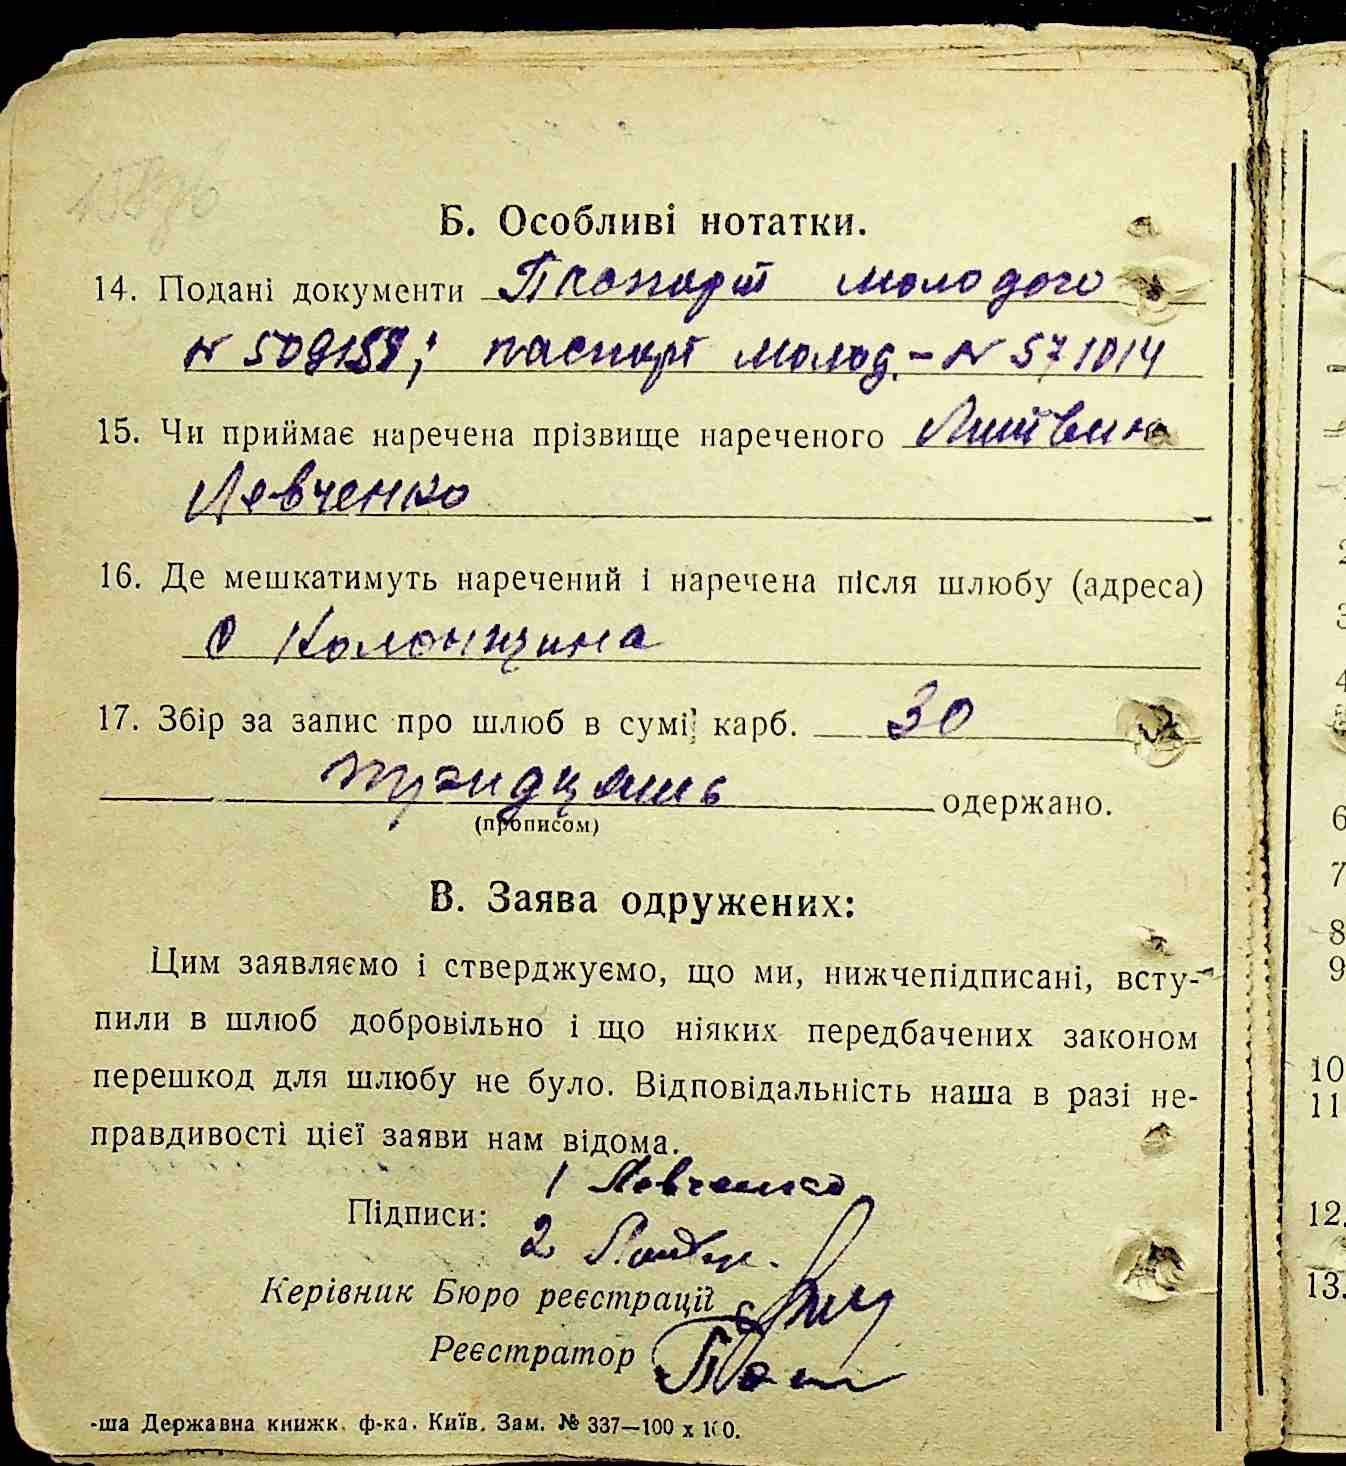 Б. Особливі нотатки.
14. Подані документи Паспорт молодого
№ 509159; паспорт молод. - № 571014
15. Чи приймає наречена прізвище нареченого Литвин
Левченко
16. Де мешкатимуть наречений і наречена після шлюбу (адреса)
с Колонщина
17. Збір за запис про шлюб в сумі карб. 30
тридцять одержано.
(прописом)
В. Заява одружених:
Цим заявляємо і стверджуємо, що ми, нижчепідписані, всту-
пили в шлюб добровільно і що ніяких передбачених законом
перешкод для шлюбу не було. Відповідальність наша в разі не-
правдивості цієї заяви нам відома.
1 Левченко
Підписи:
2
Керівник Бюро реєстрації
Реєстратор
-ша Державна книжк. ф-ка. Київ. Зам. № 337—100 х 100.
2
3
4
6
7
8
9
10
11
12.
13.